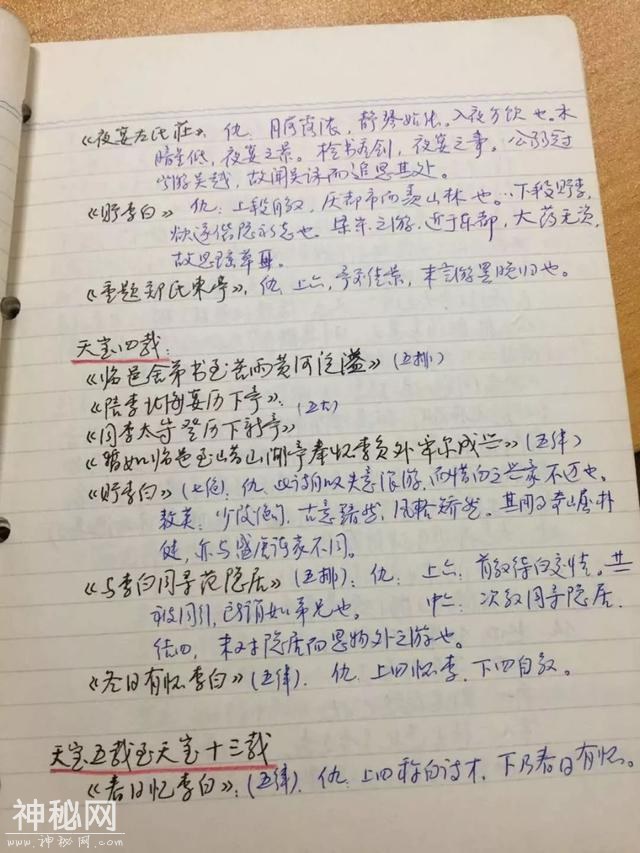 《夜宴左氏莊》：仇：月荷露浓，静琴始张，入夜方饮也。木
暗星低，夜宴之景。检书看剑，夜宴之事。公弱冠
时游吴越，故闻吴咏而追思其处。
《贈李白》仇：上段自叙，厌都市而羡山林也。下段贈李，
欲遂偕隐之志也 梁宋之游，近于东都，大药无资，
故思
《重题郑氏東亭》，仇 上六，亭承佳景，末言游罢晚归也。
天宝四载：
《临邑舍弟书至苦雨黄河泛溢》（五排）
《陪李北海宴历下亭》：（五古）
《同李太守登历下新亭》
《暂如临邑至山湖亭奉怀李员外率尔成兴》（五律）
《贈李白》（七绝）：仇 此诗自叹失意浪游，而惜白之兴豪不遇也。
教英：少陵绝句，古意黯然，风格矫然，其用事奇崛朴
健，亦与盛唐诸家不同。
《与李白同寻范隐居》（五排）：仇：上六：前叙得白交情。其
被同行，所谓如弟兄也。 中二：次叙同寻隐居.
结四，末对隐居而思物外之游也。
《冬日有怀李白》（五律）. 仇 上四怀李，下四自叙。
天宝五载至天宝十三载
《春日忆李白》：（五律）. 仇：上四称白诗才，下乃春日有怀。
神秘网
www.神秘网.com